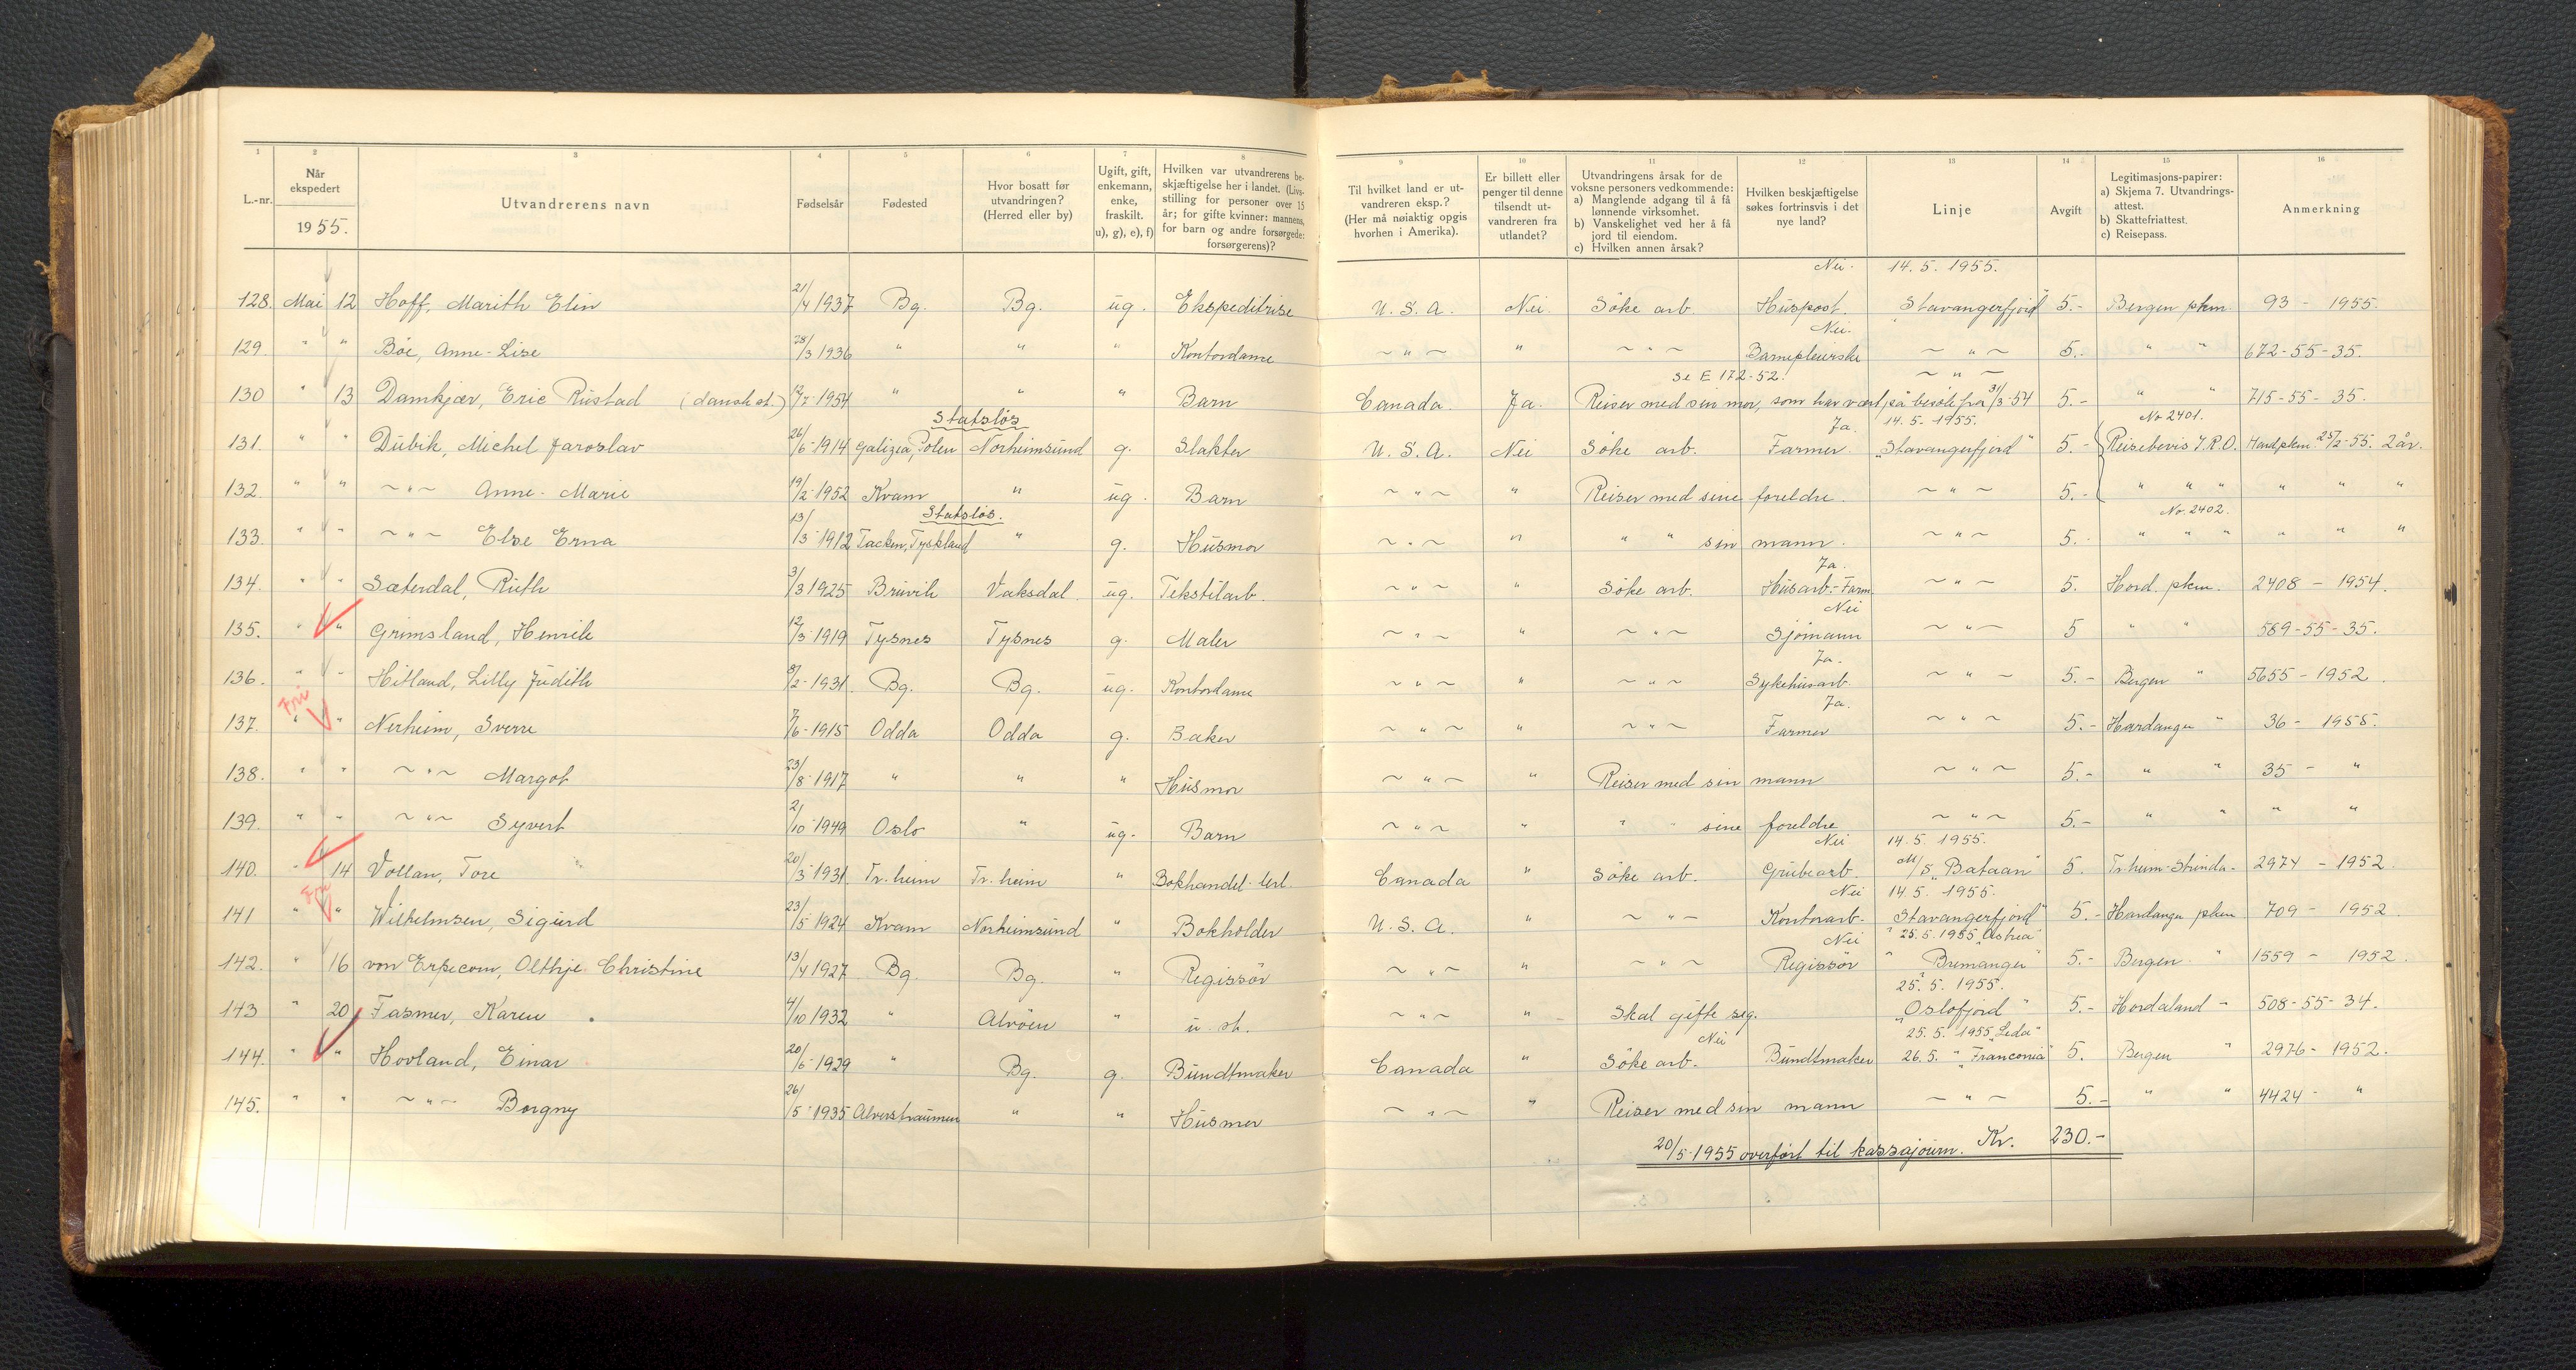 1 2 3 4 5 6 7 8 9 10 11 12 13 14 15 16
L.-nr. Når ekspedert 1955. Utvandrerens navn Fødselsår Fødested Hvor bosatt før utvandringen? (Herred eller by) Ugift, gift, enkemann, enke, fraskilt. u), g), e), f) Hvilken var utvandrerens beskjæftigelse her i landet. (Livsstilling for personer over 15 år; for gifte kvinner: mannens, for barn og andre forsørgede: forsørgerens)? Til hvilket land er utvandreren eksp.? (Her må nøiaktig opgis hvorhen i Amerika). Er billett eller penger til denne tilsendt utvandreren fra utlandet? Utvandringens årsak for de voksne personers vedkommende: a) Manglende adgang til å få lønnende virksomhet. b) Vanskelighet ved her å få jord til eiendom. c) Hvilken annen årsak? Hvilken beskjæftigelse søkes fortrinsvis i det nye land? Linje Avgift Legitimasjons-papirer: a) Skjema 7. Utvandringsattest. b) Skattefriattest. c) Reisepass. Anmerkning
Nei. 14. 5. 1955.
128. Mai 12 Hoff, Marith Elin 21/4 1937 Bg. Bg. ug. Ekspeditrise U. S. A. Nei Söke arb. Huspost. "Stavangerfjord" 5.- Bergen pkm. 93 - 1955.
Nei.
129. " " Böe, Anne-Lise 28/3 1936 " " " Kontordame ~ " ~ " ~ " ~ Barnepleierske ~ " ~ 5.- " " 672-55-35.
Se E 172-52. ~ " ~
130 " 13 Damkjær, Eric Rustad (dansk st.) 12/7-1954 " " " Barn Canada. Ja. Reiser med sin mor, som har vært på besök fra 31/3-54 5.- " " 715-55-35.
Statslös Ja. 14. 5. 1955. No 2401.
131. " " Dubik, Michel Jaroslav 26/6-1914 Galizia, Polen Norheimsund g. Slakter U. S. A. Nei Söke arb. Farmer "Stavangerfjord" 5.- Reisebevis I.R.O. Hard.pkm. 25/2-55. 2 år.
132. " " ~ " ~ Anne-Marie 19/2-1952 Kvam " ug. Barn ~ " ~ " Reiser med sine foreldre. ~ " ~ 5.- " " " " " "
Statslös. No. 2402.
133. " " ~ " ~ Else Erna 13/3-1912 Tacken, Tyskland " g. Husmor ~ " ~ " " " sin mann. ~ " ~ 5. " " " " " "
Ja.
134. " " Sæterdal, Ruth 3/3 1925 Bruvik Vaksdal. ug. Tekstilarb. ~ " ~ " Söke arb. Husarb.-Farm. ~ " ~ 5. Hord. pkm. 2408 - 1954.
Nei
135. " " Grimsland, Henrik 12/3-1919 Tysnes Tysnes g. Maler ~ " ~ " ~ " ~ Sjömann ~ " ~ 5 " " 589-55-35.
Ja.
136. " " Hitland, Lilly Judith 9/2-1931. Bg. Bg. ug. Kontordame ~ " ~ " ~ " ~ Sykehusarb. ~ " ~ 5.- Bergen " 5655 - 1952.
Fri Ja.
137. " " Nerheim, Sverre 7/6-1915 Odda Odda g. Baker ~ " ~ " ~ " ~ Farmer ~ " ~ 5.- Hardanger " 36 - 1955.
138. " " ~ " ~ Margot 23/8-1917 " " " Husmor ~ " ~ " Reiser med sin mann ~ " ~ 5.- " " 35 - "
139. " " ~ " ~ Syvert 2/10-1949 Oslo " ug. Barn ~ " ~ " " " sine foreldre ~ " ~ 5.- " " " "
Nei 14. 5. 1955.
140. " 14 Vollan, Tore 20/3-1931. Tr.heim Tr.heim " Bokhandel.-Utl. Canada " Söke arb. Grubearb. M/S "Bataan" 5. Tr.heim-Strinda- 2974 - 1952
Fri Nei 14. 5. 1955.
141 " " Wilhelmsen, Sigurd 23/5 1924 Kvam Norheimsund " Bokholder U. S. A. " ~ " ~ Kontorarb. "Stavangerfjord" 5.- Hardanger pkm 709 - 1952
Nei 25. 5. 1955 "Astrea"
142. " 16 von Erpecom, Olthje Christine 13/4 1927 Bg. Bg. " Regissör ~ " ~ " ~ " ~ Regissör "Bremanger" 5.- Bergen " 1559 - 1952.
25. 5. 1955.
143 " 20 Fasmer, Karen 4/10 1932 " Alvöen " u. st. ~ " ~ " Skal gifte seg. "Oslofjord" 5.- Hordaland " 508-55-34.
Nei 25. 5. 1955 "Leda"
144. " " Hovland, Einar 20/6-1929 " Bg. g. Bundtmaker Canada " Söke arb. Bundtmaker 26. 5. " "Franconia" 5. Bergen " 2976-1952.
145. " " ~ " ~ Borgny 26/5-1935 Alverstraumen " " Husmor ~ " ~ " Reiser med sin mann ~ " ~ 5.- " " 4424 - "
20/5-1955 overfört til kassajourn. Kr. 230.-